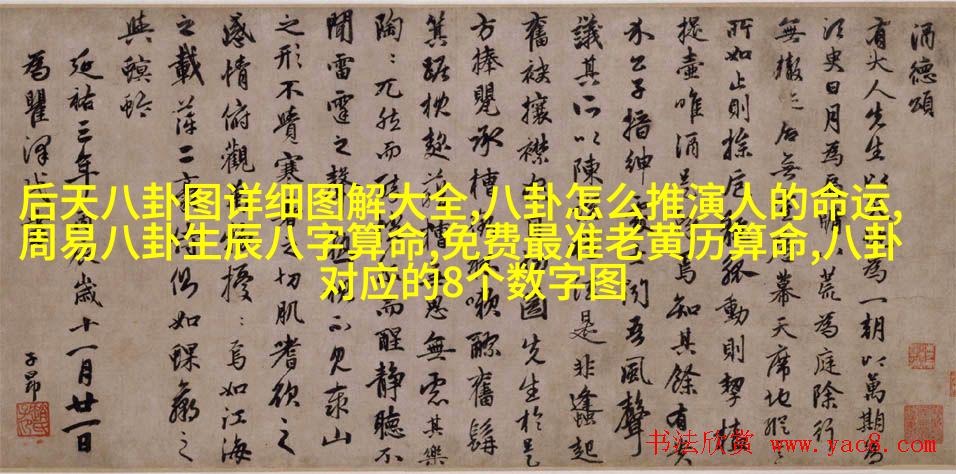 后天八卦图详细图解大全,八卦怎么推演人的命运,
周易八卦生辰八字算命,免费最准老黄历算命,八卦
对应的8个数字图
酒德頌
有大人先生以為一朝以萬期為
須臾日月為荒為庭除行
無轍迹幕天席地縱
所如止則操卮觚動則挈榼
提壺唯酒焉知其餘有貴
介公子搢紳聞吾風聲
議其所以陳是非蠭起
奮袂攘襟先生於是
方捧甖承槽漱醪奮髯
箕踞枕麴藉糟思無慮其樂
陶〻兀然而而醒靜聽不
聞雷霆之聲不見泰山
之形不覺寒暑之切肌嗜欲之
感情俯觀擾〻焉如江海
之載萍二豪侍側如蜾蠃之
與螟蛉
延祐三年歲十一月廿一日
為瞿澤
子昂
书法欣赏 www.yac8.com